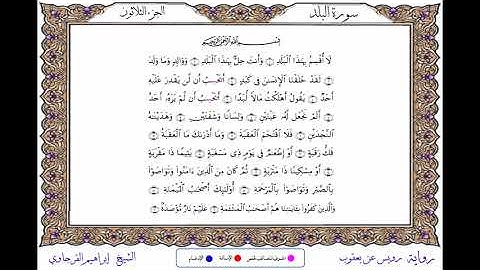 سورة البلد
الجزء الثلاثون
بسم الله الرحمن الرحيم
لَا أُقْسِمُ بِهَٰذَا الْبَلَدِ ۝ وَأَنتَ حِلٌّ بِهَٰذَا الْبَلَدِ ۝ وَوَالِدٍ وَمَا وَلَدَ
۝ لَقَدْ خَلَقْنَا الْإِنسَٰنَ فِي كَبَدٍ ۝ أَيَحْسِبُ أَن لَّن يَقْدِرَ عَلَيْهِ
أَحَدٌ ۝ يَقُولُ أَهْلَكْتُ مَالًا لُّبَدًا ۝ أَيَحْسِبُ أَن لَّمْ يَرَهُ أَحَدٌ
۝ أَلَمْ نَجْعَل لَّهُ عَيْنَيْنِ ۝ وَلِسَانًا وَشَفَتَيْنِ ۝ وَهَدَيْنَٰهُ
النَّجْدَيْنِ ۝ فَلَا اقْتَحَمَ الْعَقَبَةَ ۝ وَمَا أَدْرَىٰكَ مَا الْعَقَبَةُ ۝
فَكُّ رَقَبَةٍ ۝ أَوْ إِطْعَٰمٌ فِي يَوْمٍ ذِي مَسْغَبَةٍ ۝ يَتِيمًا ذَا مَقْرَبَةٍ
۝ أَوْ مِسْكِينًا ذَا مَتْرَبَةٍ ۝ ثُمَّ كَانَ مِنَ الَّذِينَ ءَامَنُوا وَتَوَاصَوْا
بِالصَّبْرِ وَتَوَاصَوْا بِالْمَرْحَمَةِ ۝ أُولَٰئِكَ أَصْحَٰبُ الْمَيْمَنَةِ
۝ وَالَّذِينَ كَفَرُوا بِـَٔايَٰتِنَا هُمْ أَصْحَٰبُ الْمَشْـَٔمَةِ ۝ عَلَيْهِمْ نَارٌ مُّؤْصَدَةٌ ۝
رواية رويس عن يعقوب
الإمالة
الإدغام
الشيخ إبراهيم الفرجاوي